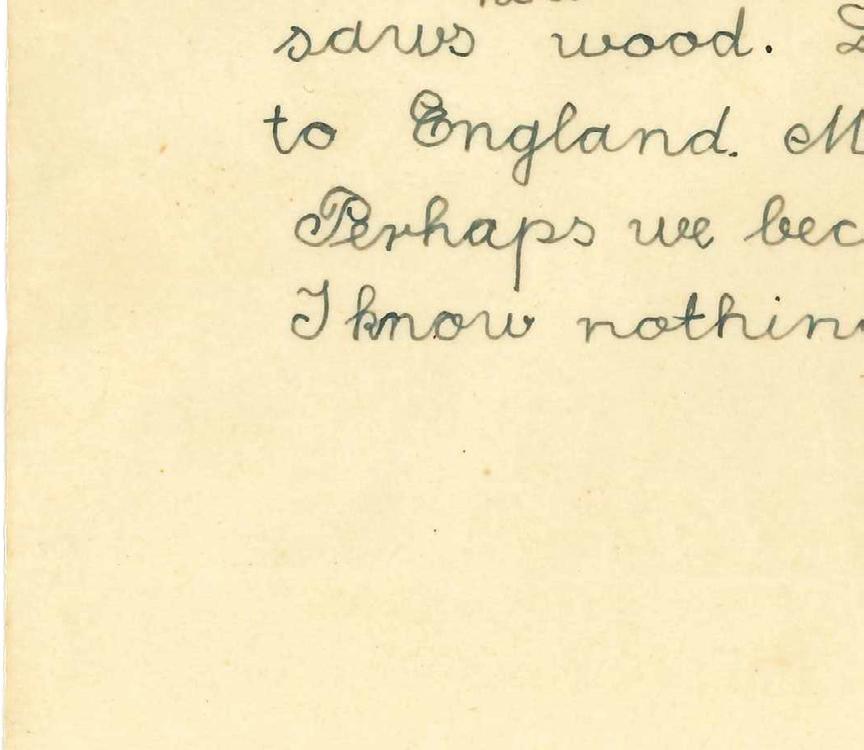 saws wood.
to England. M
Perhaps we bec
I know nothin